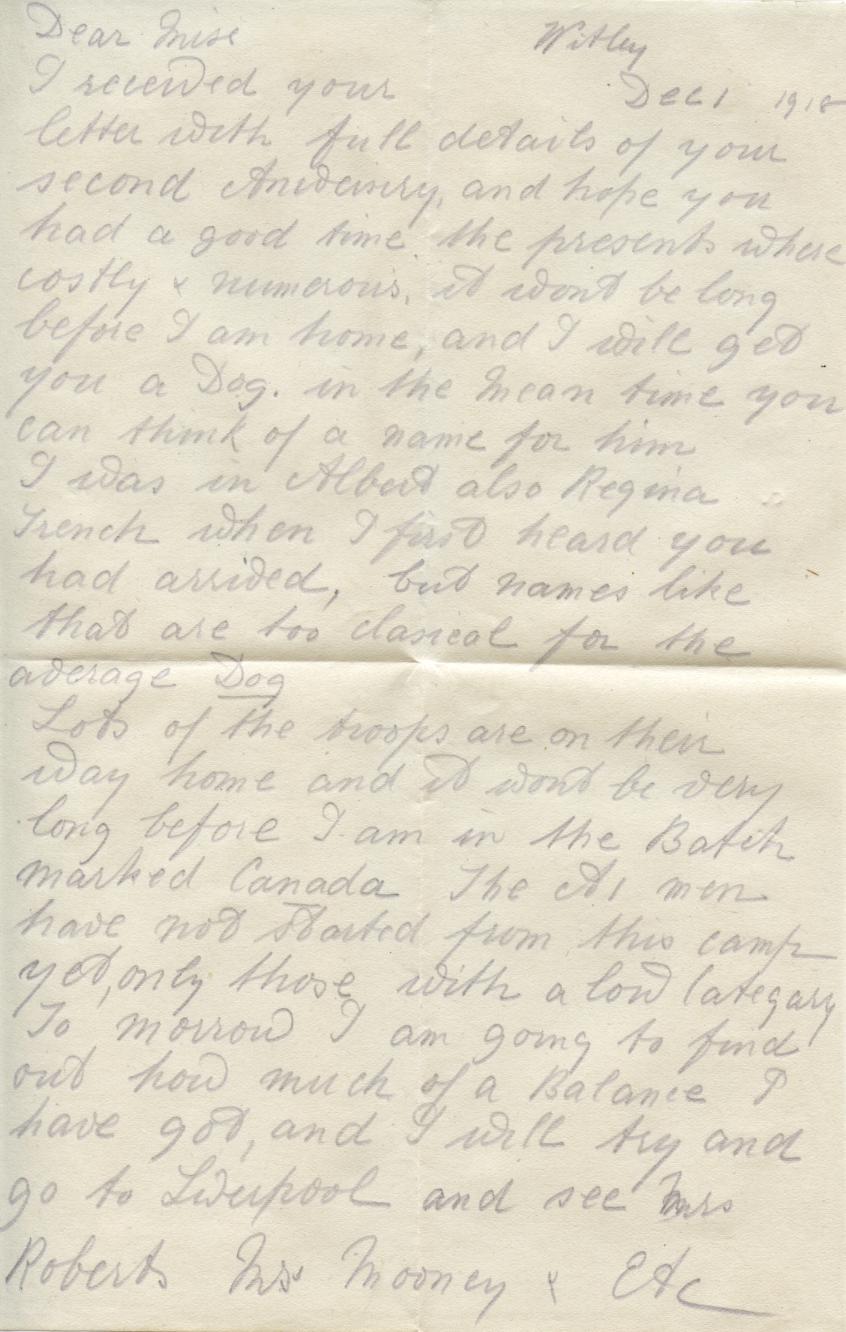 Dear Miss Witley
I received your Dec 1 1918
letter with full details of your
second Aniversary, and hope you
had a good time the presents where
costly & numerous, it wont be long
before I am home, and I will get
you a Dog. in the mean time you
can think of a name for him
I was in Albert also Regina
Trench when I first heard you
had arrived, but names like
that are too clasical for the
average Dog
Lots of the troops are on their
way home and it wont be very
long before I am in the Batch
marked Canada The A1 men
have not started from this camp
yet, only those with a low Categary
To morrow I am going to find
out how much of a Balance I
have got, and I will try and
go to Liverpool and see Mrs
Roberts Mrs Mooney & Etc